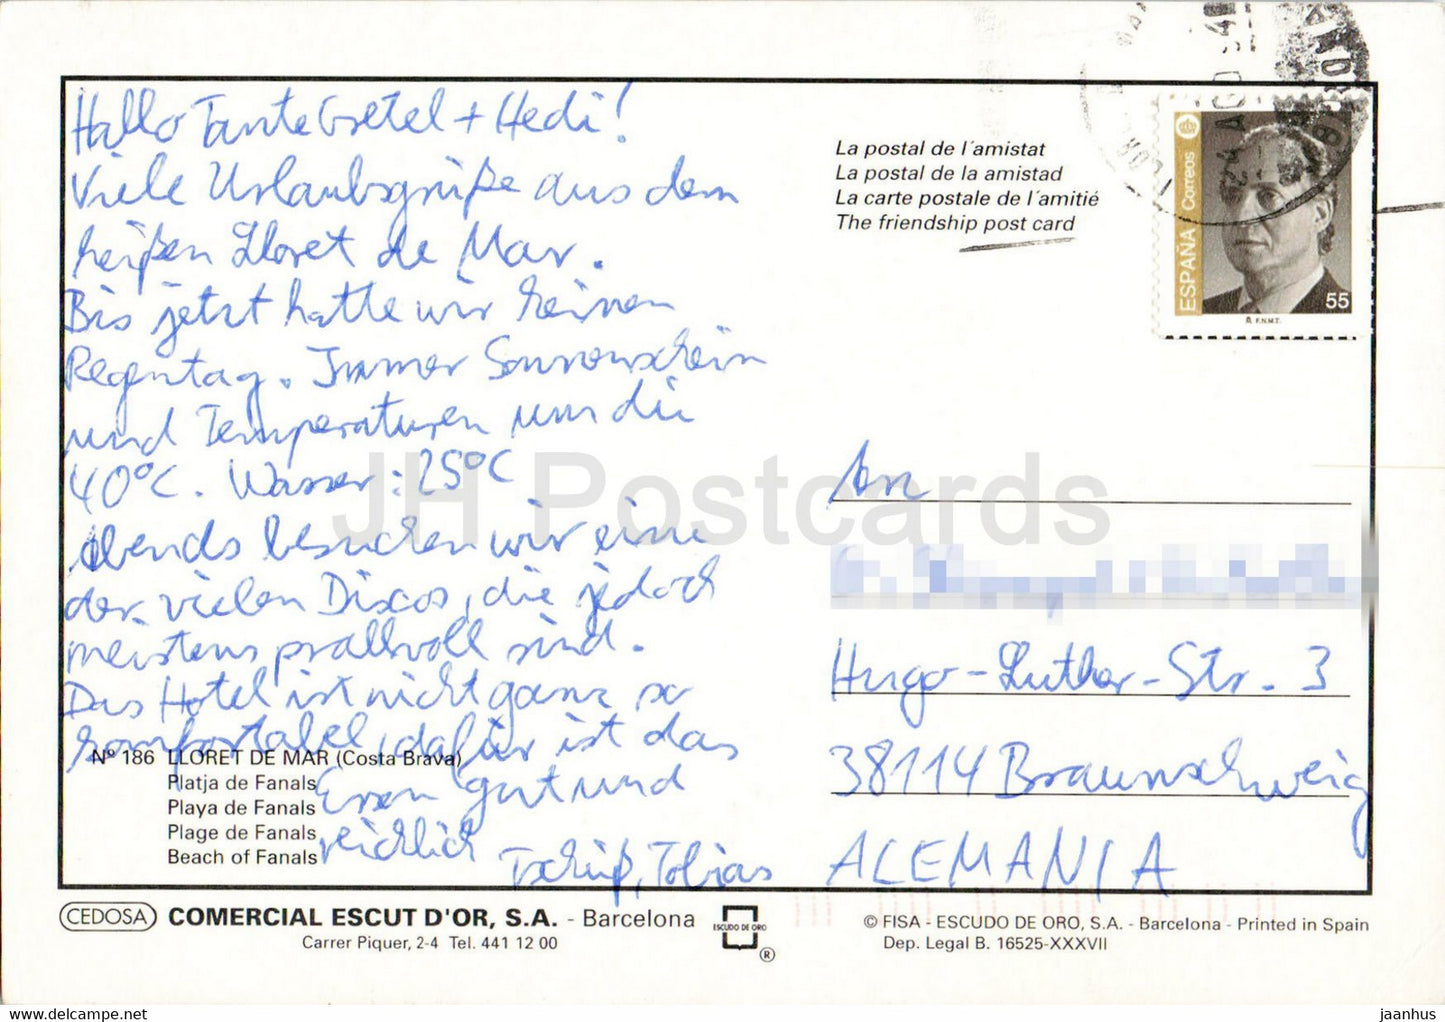 Hallo Tante Gretel + Hedi!
Viele Urlaubsgrüße aus dem
heißen Lloret de Mar.
Bis jetzt hatte wir keinen
Regentag. Immer Sonnenschein
und Temperaturen um die
40°C. Wasser: 25°C
Abends besuchen wir eine
der vielen Discos, die jedoch
meistens prallvoll sind.
Das Hotel ist nicht ganz so
komfortabel, dafür ist das
Essen gut und
reichlich
Tschüß, Tobias
Nº 186 LLORET DE MAR (Costa Brava)
Platja de Fanals
Playa de Fanals
Plage de Fanals
Beach of Fanals
La postal de l´amistat
La postal de la amistad
La carte postale de l´amitié
The friendship post card
ESPAÑA Correos
55
F.N.M.T.
An
Hugo-Luther-Str. 3
38114 Braunschweig
ALEMANIA
JH Postcards
CEDOSA COMERCIAL ESCUT D'OR, S.A. - Barcelona
Carrer Piquer, 2-4 Tel. 441 12 00
ESCUDO DE ORO
®
© FISA - ESCUDO DE ORO, S.A. - Barcelona - Printed in Spain
Dep. Legal B. 16525-XXXVII
https://www.hippostcard.com/store/jhpostcards
jaanhus